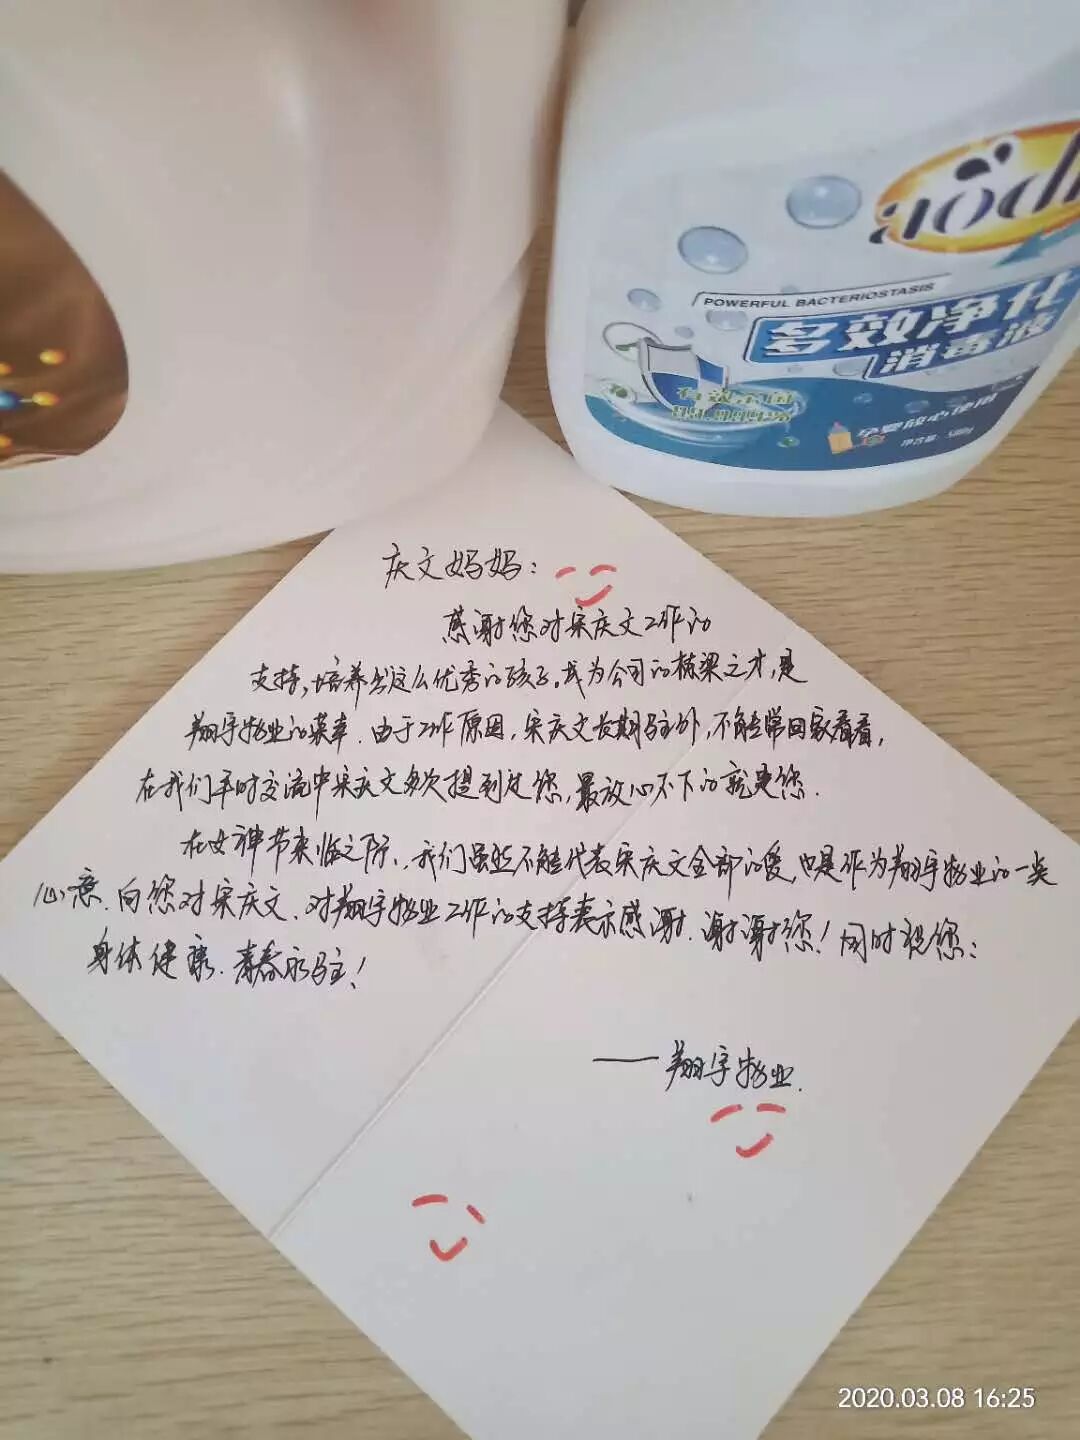 aodi
POWERFUL BACTERIOSTASIS
多效净化
消毒液
有效杀菌
孕婴放心使用
净含量：500g
庆文妈妈：
感谢您对宋庆文工作的
支持，培养出这么优秀的孩子。成为公司的栋梁之才，是
翔宇物业的荣幸．由于工作原因，宋庆文长期驻外，不能常回家看看，
在我们平时交流中宋庆文多次提到过您，最放心不下的就是您．
在女神节来临之际、我们虽然不能代表宋庆文全部的爱，也是作为翔宇物业的一类
心意．向您对宋庆文、对翔宇物业工作的支持表示感谢．谢谢您！同时祝您：
身体健康．青春永驻！
——翔宇物业．
2020.03.08 16:25